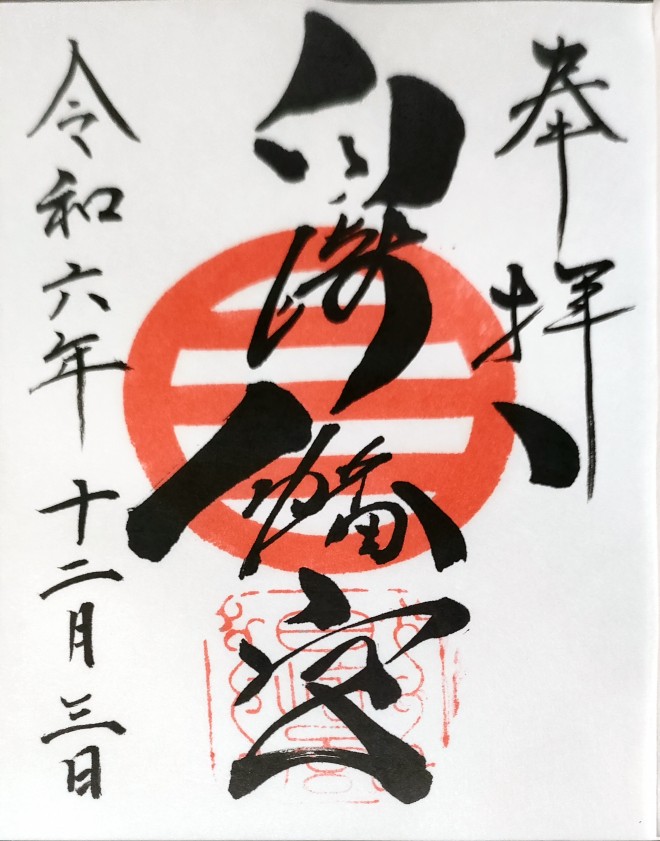 奉拝
八幡宮
令和六年 十二月 三日